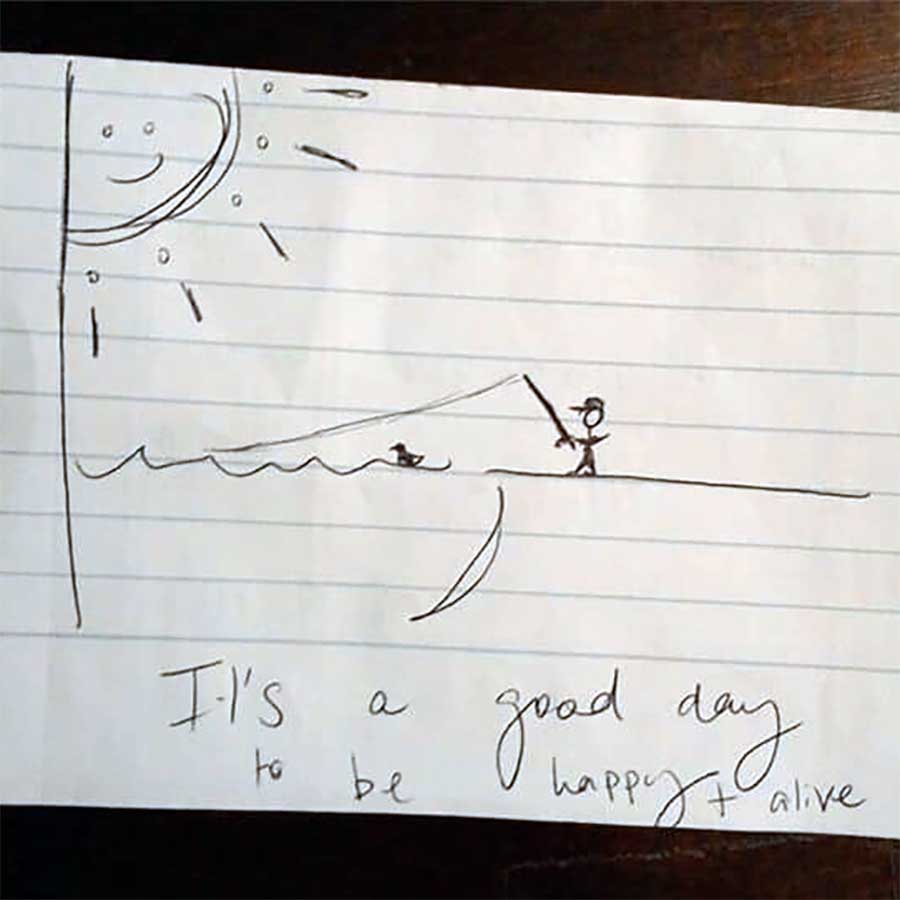 It's a good day
to be happy + alive